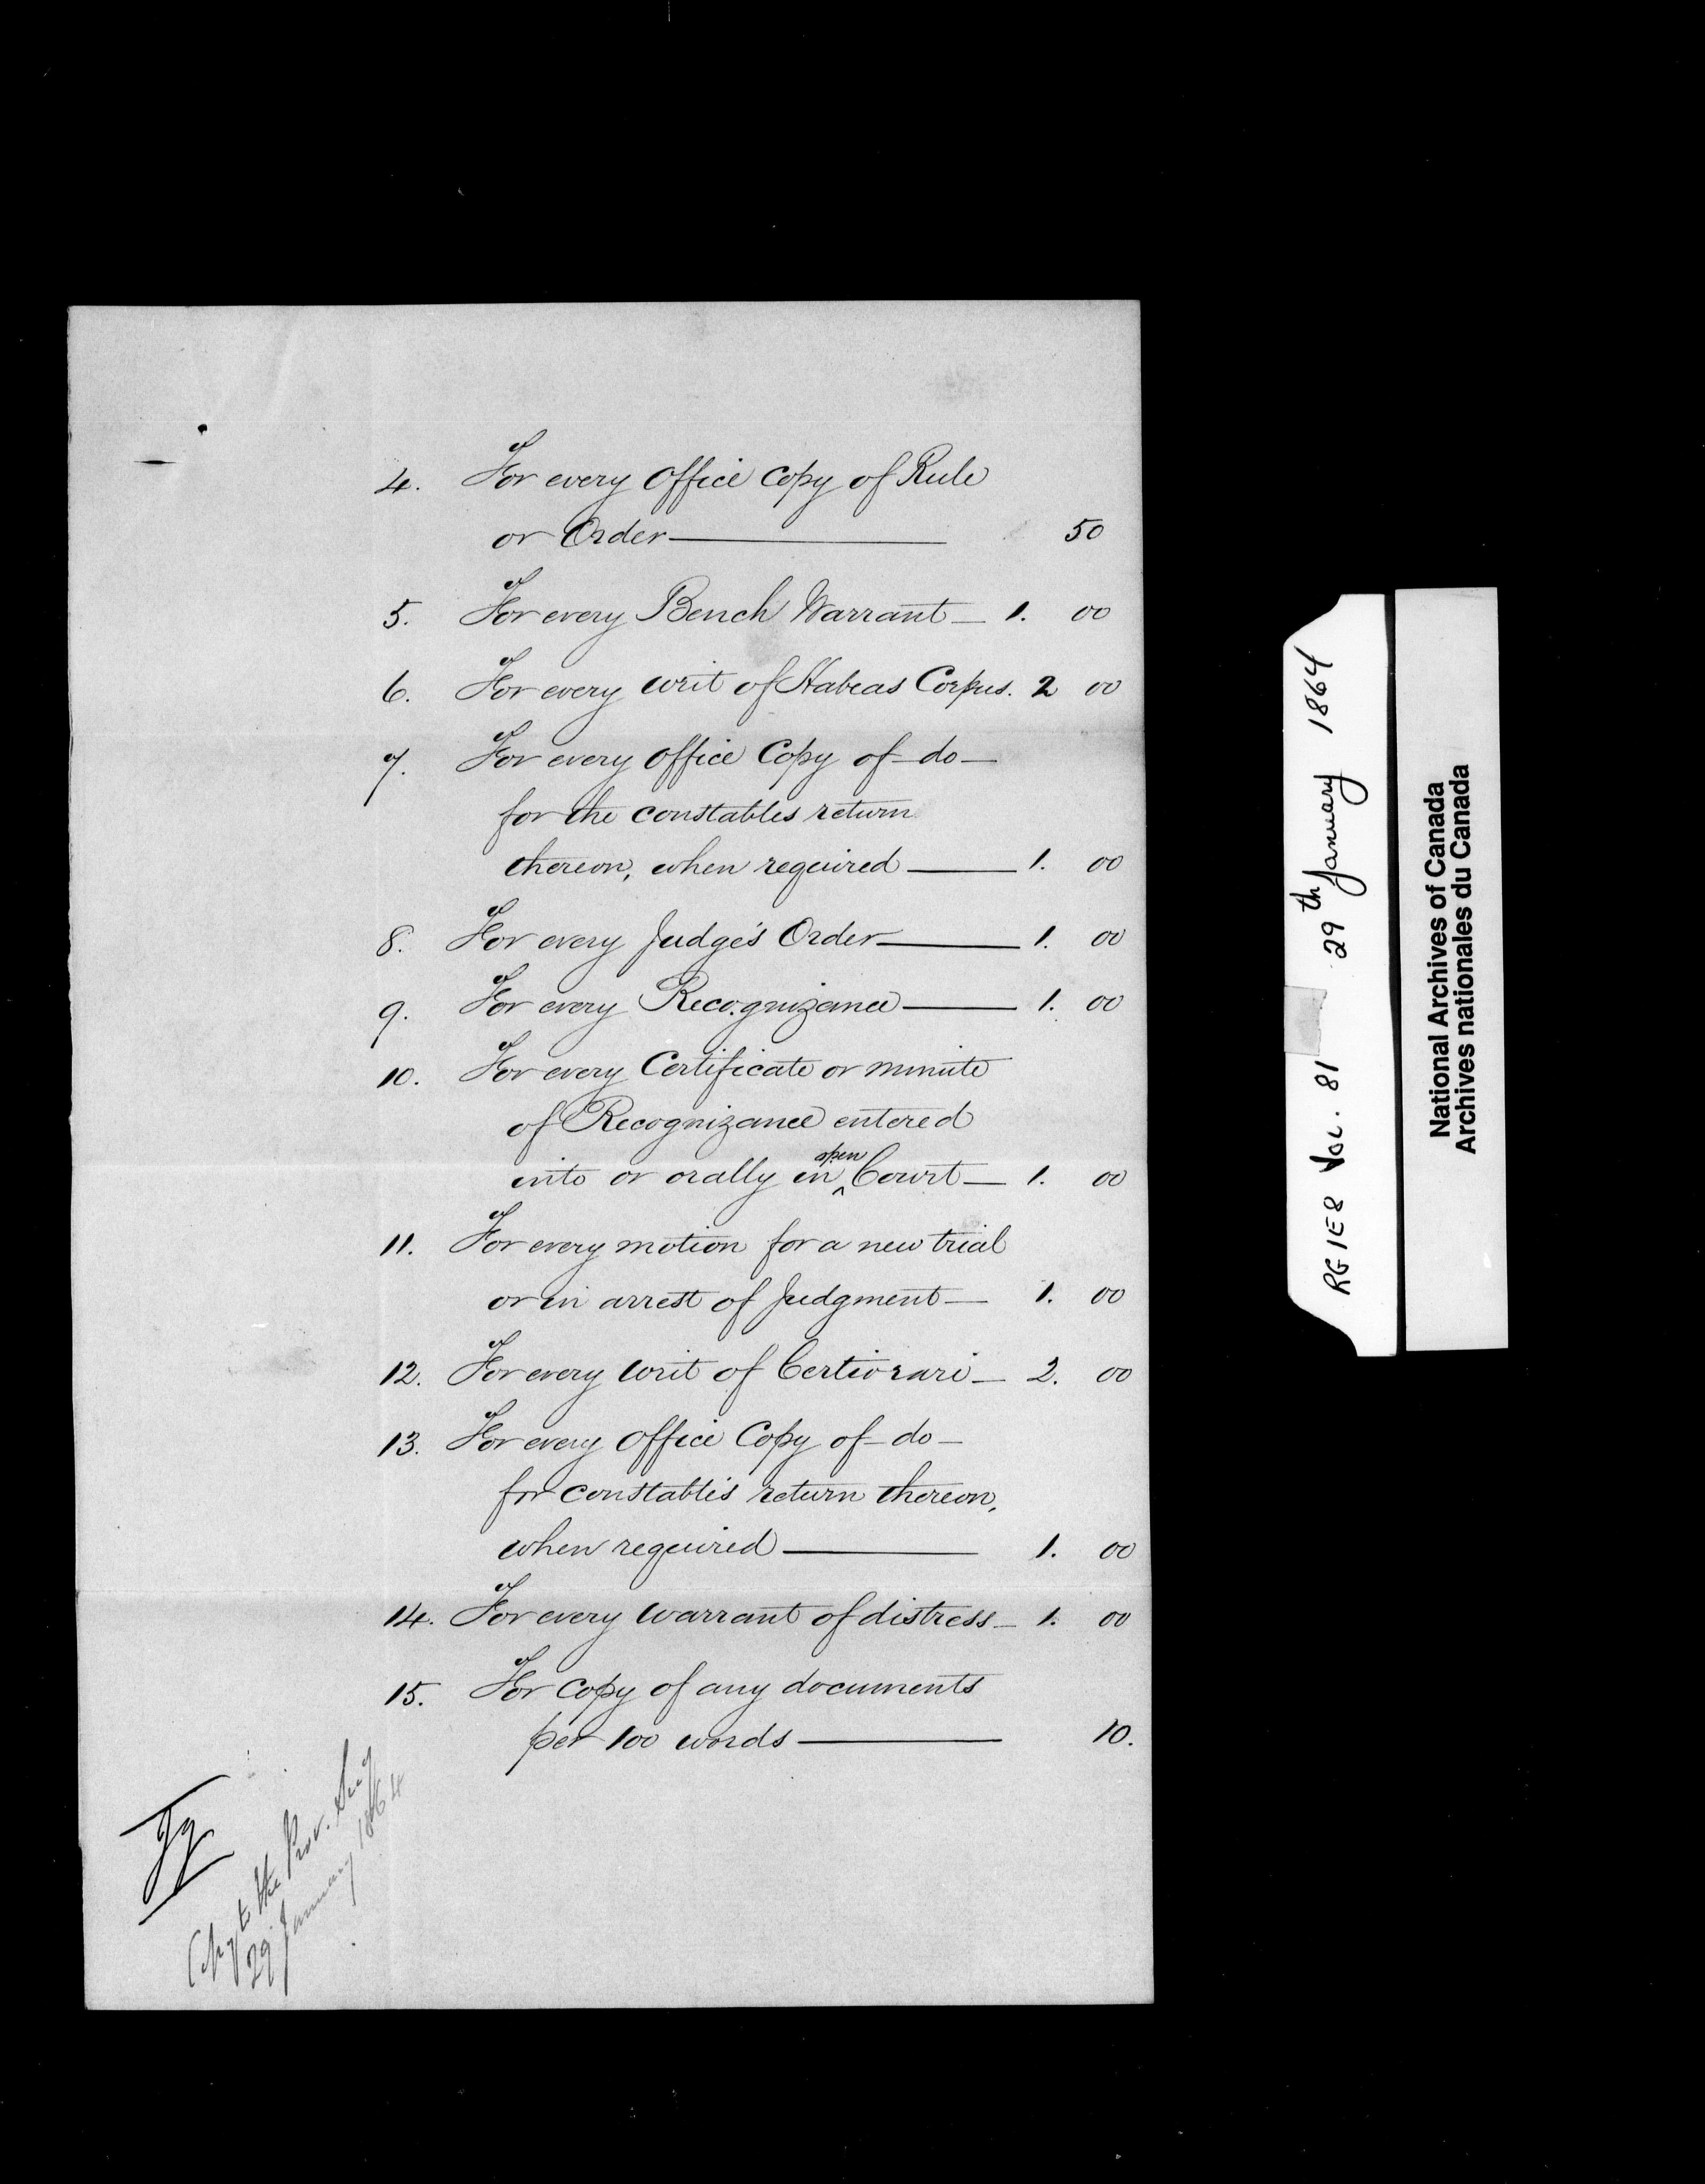 4. For every Office Copy of Rule
or Order — 50
5. For every Bench Warrant — 1. 00
6. For every writ of Habeas Corpus. 2 00
7. For every Office Copy of — do —
for the constables return
thereon, when required — 1. 00
8. For every Judge's Order — 1. 00
9. For every Recognizance — 1. 00
10. For every Certificate or minute
of Recognizance entered
into or orally in open Court — 1. 00
11. For every motion for a new trial
or in arrest of Judgment — 1. 00
12. For every writ of Certiorari — 2. 00
13. For every Office Copy of — do —
for constable's return thereon,
when required — 1. 00
14. For every warrant of distress — 1. 00
15. For Copy of any documents
per 100 words — 10.
Copy to the Prov. Secy
29 January 1864
RG 1E8 Vol. 81 29th January 1864
National Archives of Canada
Archives nationales du Canada